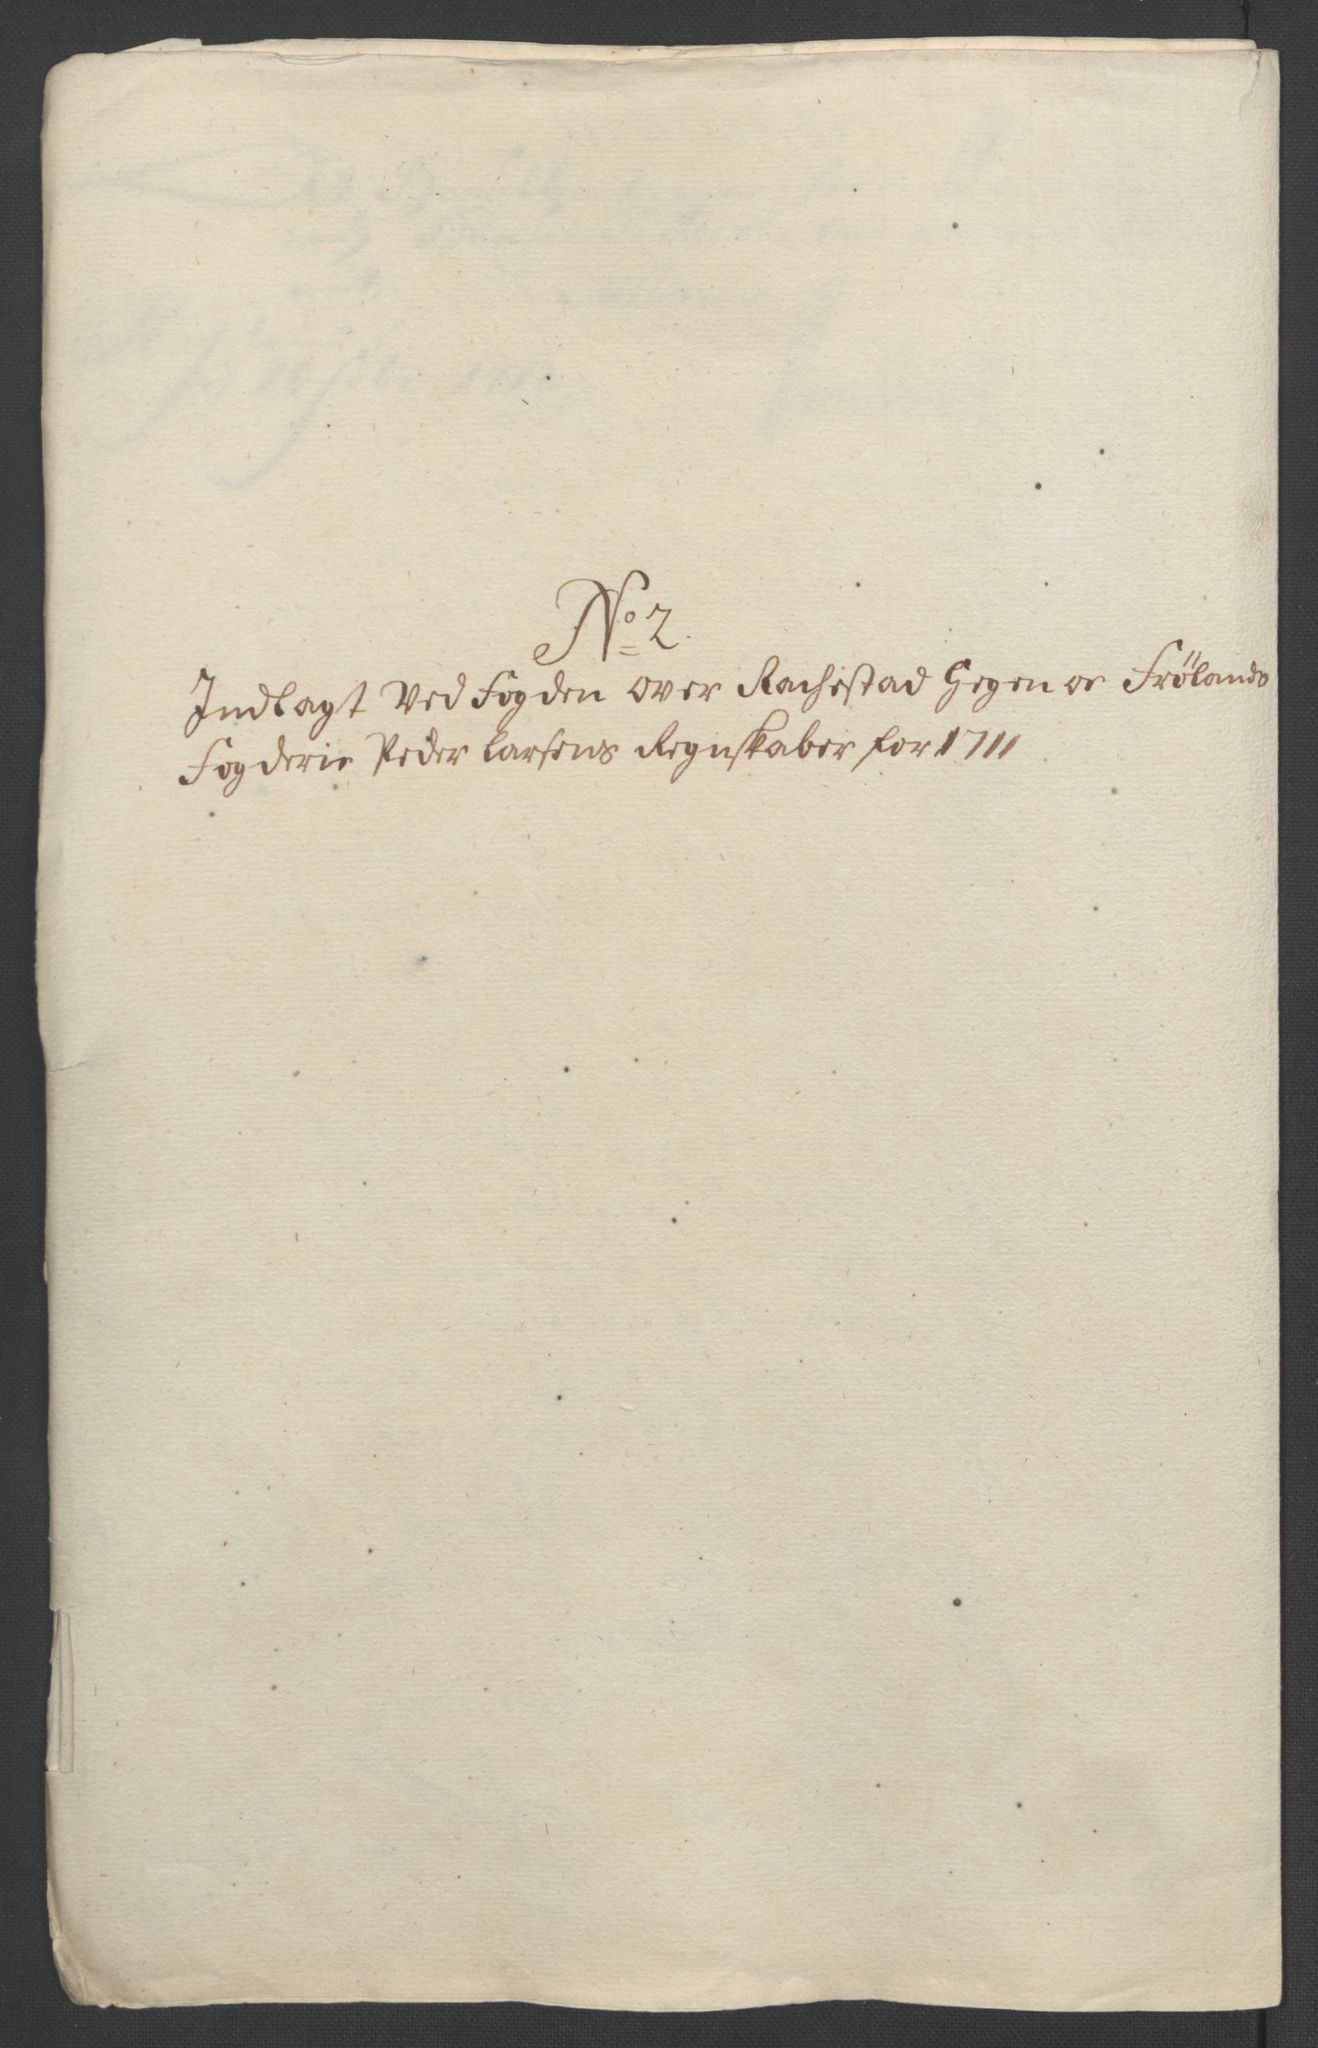 No 2.
Indlagt Ved Fogden over Rachestad Heggen oc Frölands
Fogderie Peder Larsens Regnskaber for 1711